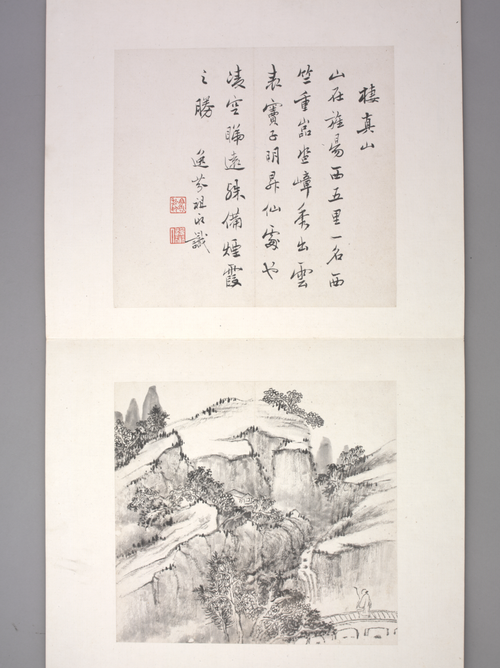 棲真山
山在旌陽西五里一名西
竺重巖疊嶂秀出雲
表竇子明昇仙處也
凌空睇遠殊備煙霞
之勝
逸芬祖永識